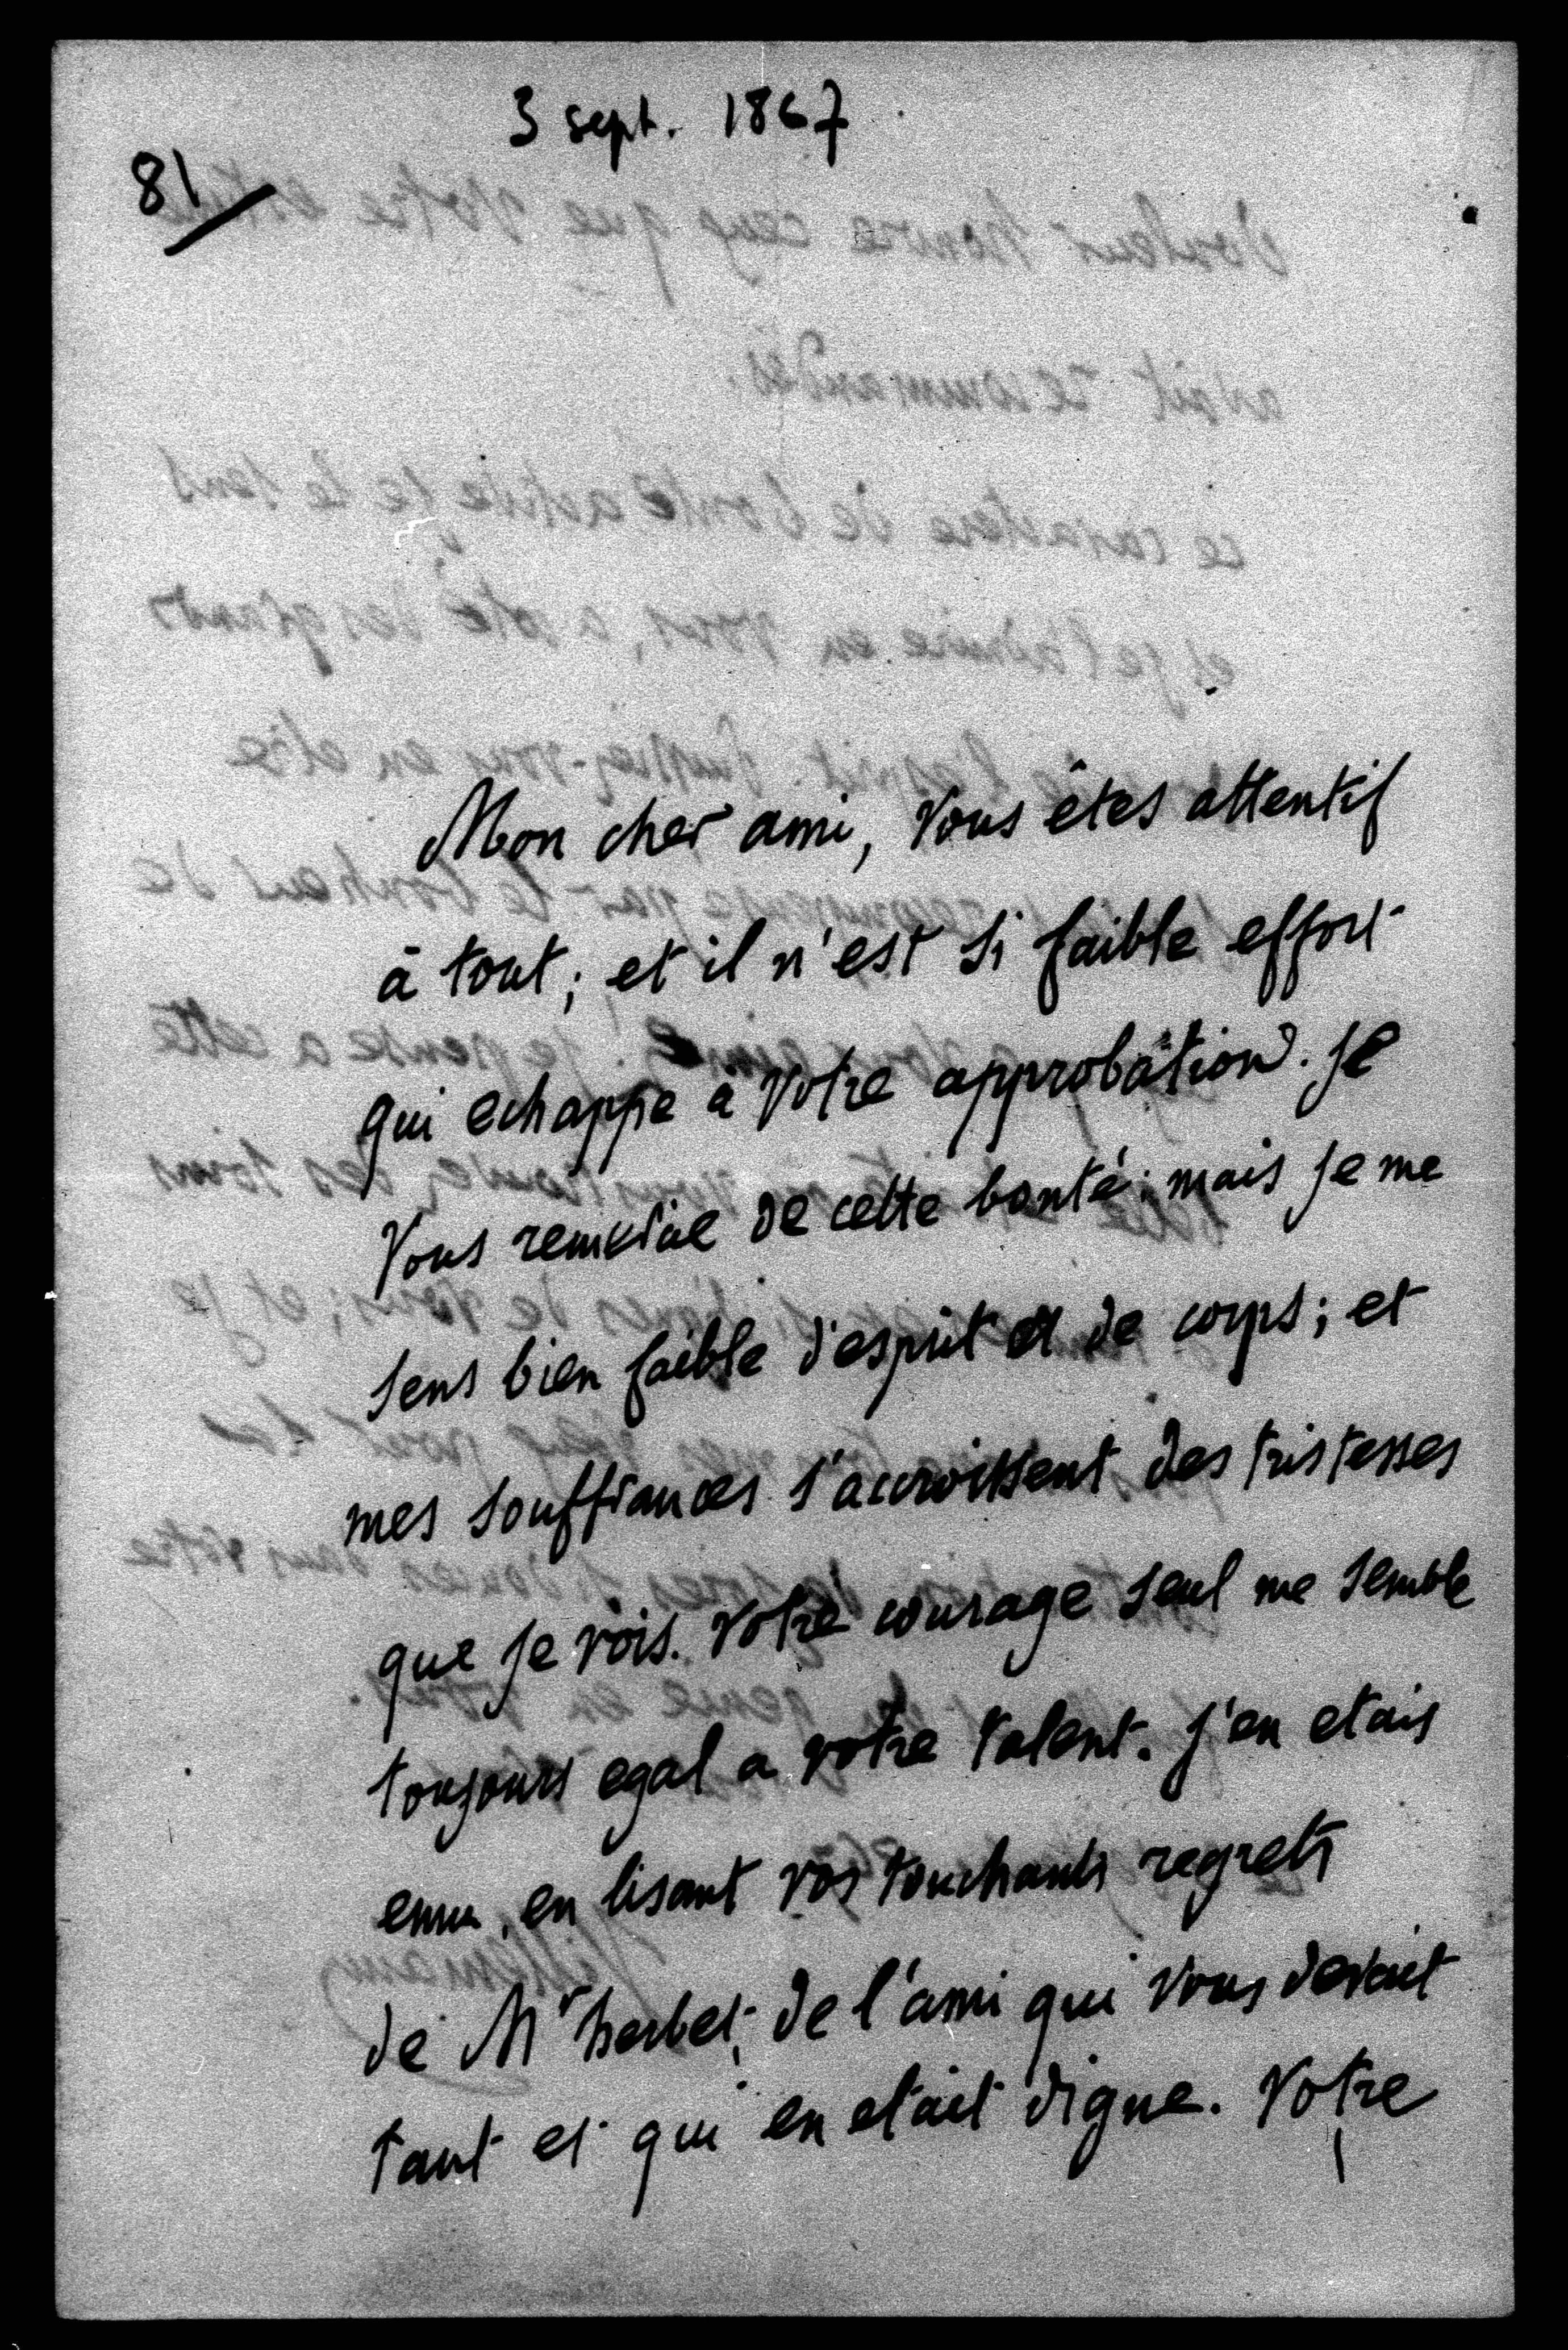 3 sept. 1867
81
Mon cher ami, Vous êtes attentif
à tout; et il n'est si faible effort
qui echappe à Votre approbation. Je
Vous remercie de cette bonté; mais je me
sens bien faible d'esprit et de corps; et
mes souffrances s'accroissent des tristesses
que je vois. Votre courage seul me semble
toujours egal a votre talent. J'en etais
emu, en lisant vos touchants regrets
de Mr herbet, de l'ami qui Vous devait
tant et qui en etait digne. Votre